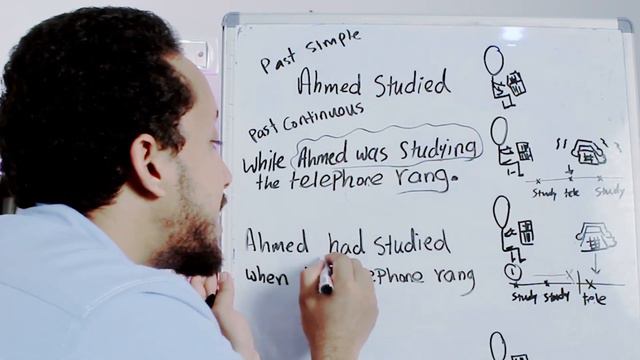 Past Simple
Ahmed Studied
Past Continuous
While Ahmed was Studying
the telephone rang.
Study tele Study
Ahmed had Studied
when ephone rang
1
Study Study tele